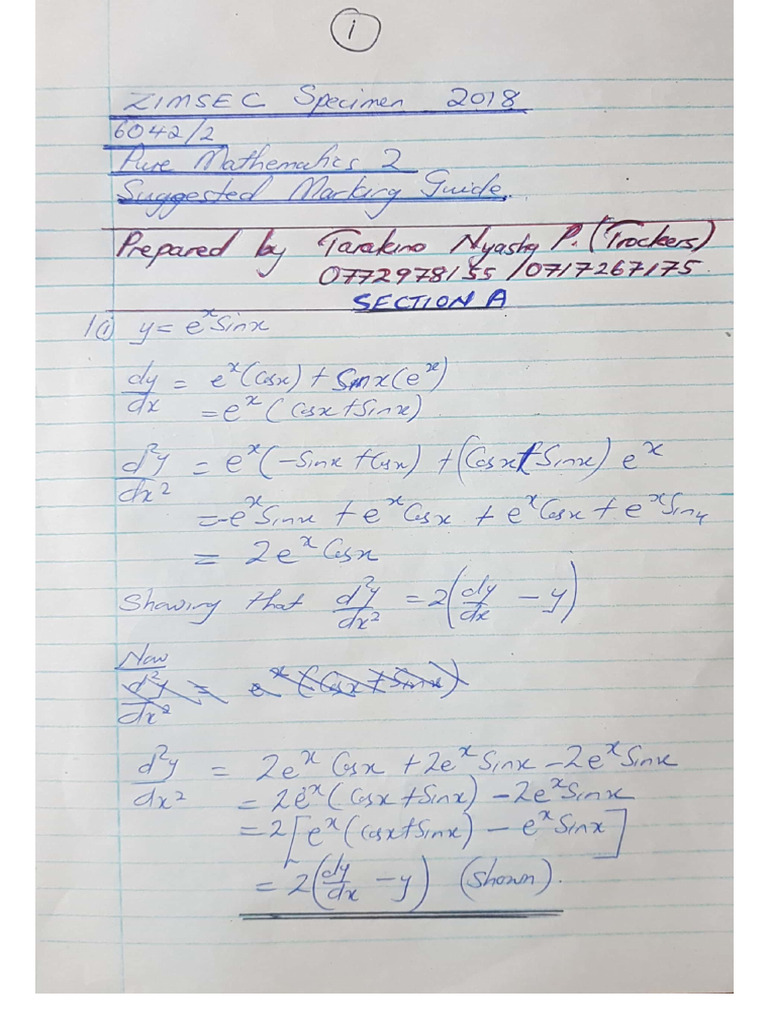 1
ZIMSEC Specimen 2018
6042/2
Pure Mathematics 2
Suggested Marking Guide.
Prepared by Tarakino Nyasha P. (Trockers)
0772978155 /0717267175.
SECTION A
1(i) y = e^x Sinx
dy/dx = e^x(Cosx) + Sinx(e^x)
= e^x(Cosx + Sinx)
d²y/dx² = e^x(-Sinx + Cosx) + (Cosx + Sinx) e^x
= -e^x Sinx + e^x Cosx + e^x Cosx + e^x Sinx
= 2e^x Cosx
Showing that d²y/dx² = 2(dy/dx - y)
Now
d²y/dx² = e^x(Cosx + Sinx)
d²y/dx² = 2e^x Cosx + 2e^x Sinx - 2e^x Sinx
= 2e^x(Cosx + Sinx) - 2e^x Sinx
= 2[e^x(Cosx + Sinx) - e^x Sinx]
= 2(dy/dx - y) (Shown).